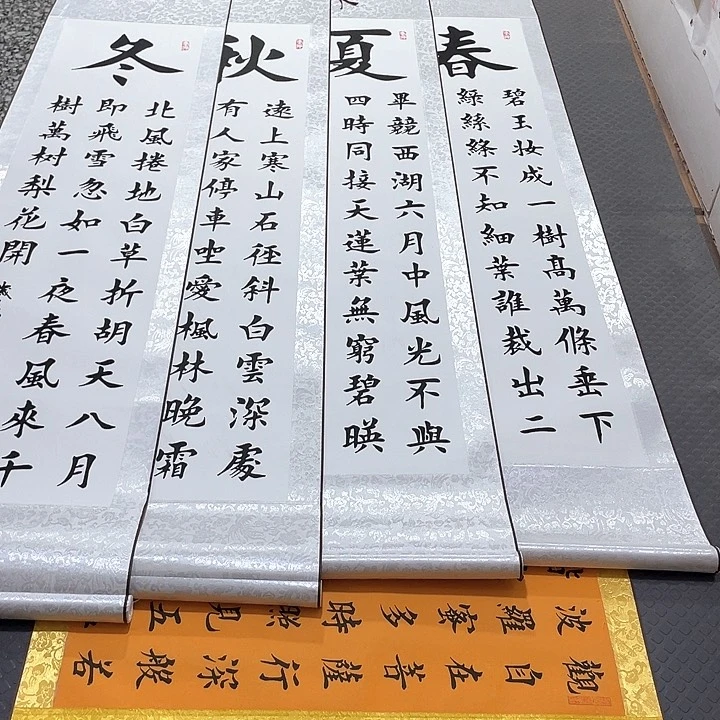 春
碧玉妆成一樹高萬條垂下
綠絲絛不知細葉誰裁出二
夏
畢競西湖六月中風光不與
四時同接天蓮葉無窮碧暎
秋
遠上寒山石徑斜白雲深處
有人家停車坐愛楓林晚霜
冬
北風捲地白草折胡天八月
即飛雪忽如一夜春風來千
樹萬树梨花開
觀自在菩薩行深般若
波羅蜜多時照見五